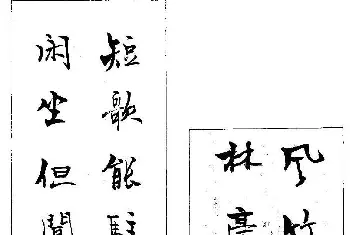 短歌能駐
闲坐但聞
风竹
林